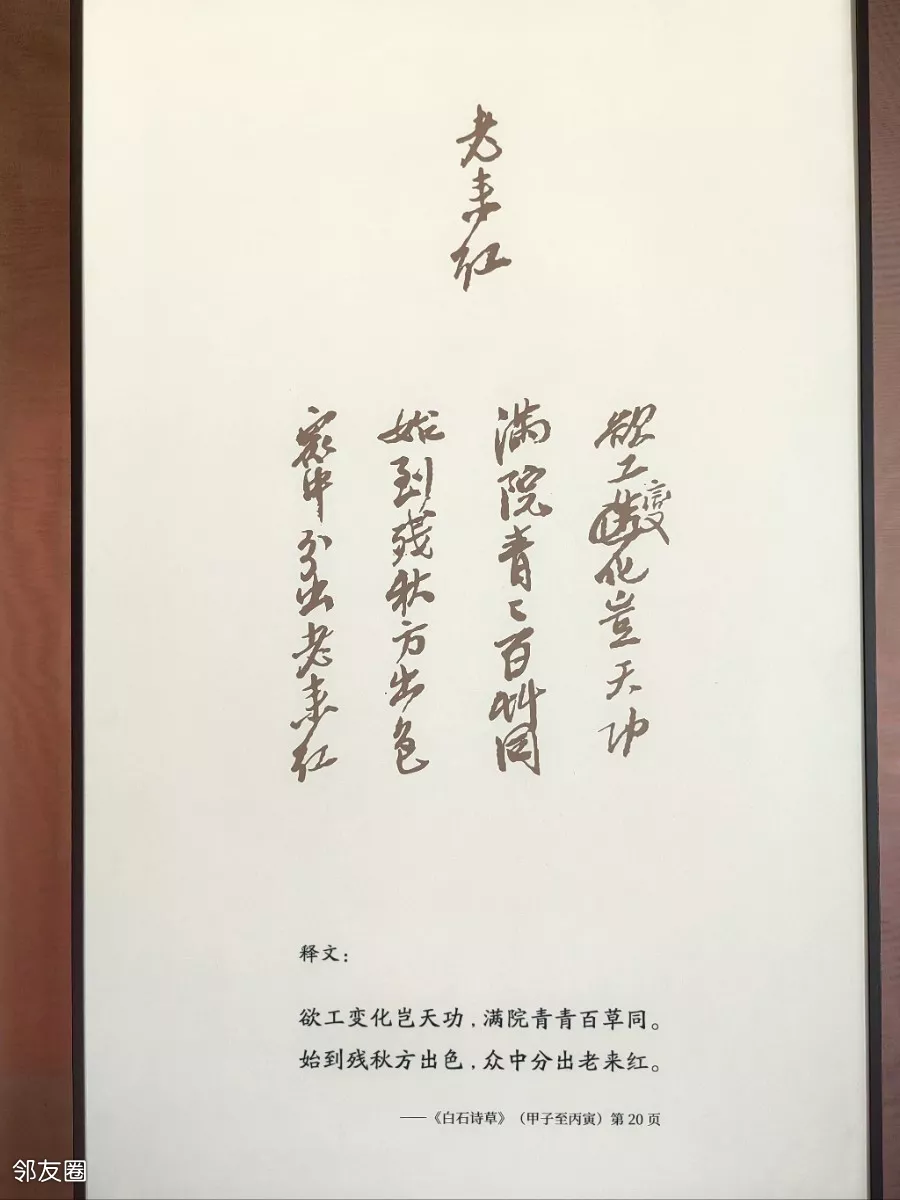 老来红
欲工变化岂天功
满院青〻百草同
始到残秋方出色
众中分出老来红
释文：
欲工变化岂天功，满院青青百草同。
始到残秋方出色，众中分出老来红。
——《白石诗草》（甲子至丙寅）第 20 页
邻友圈